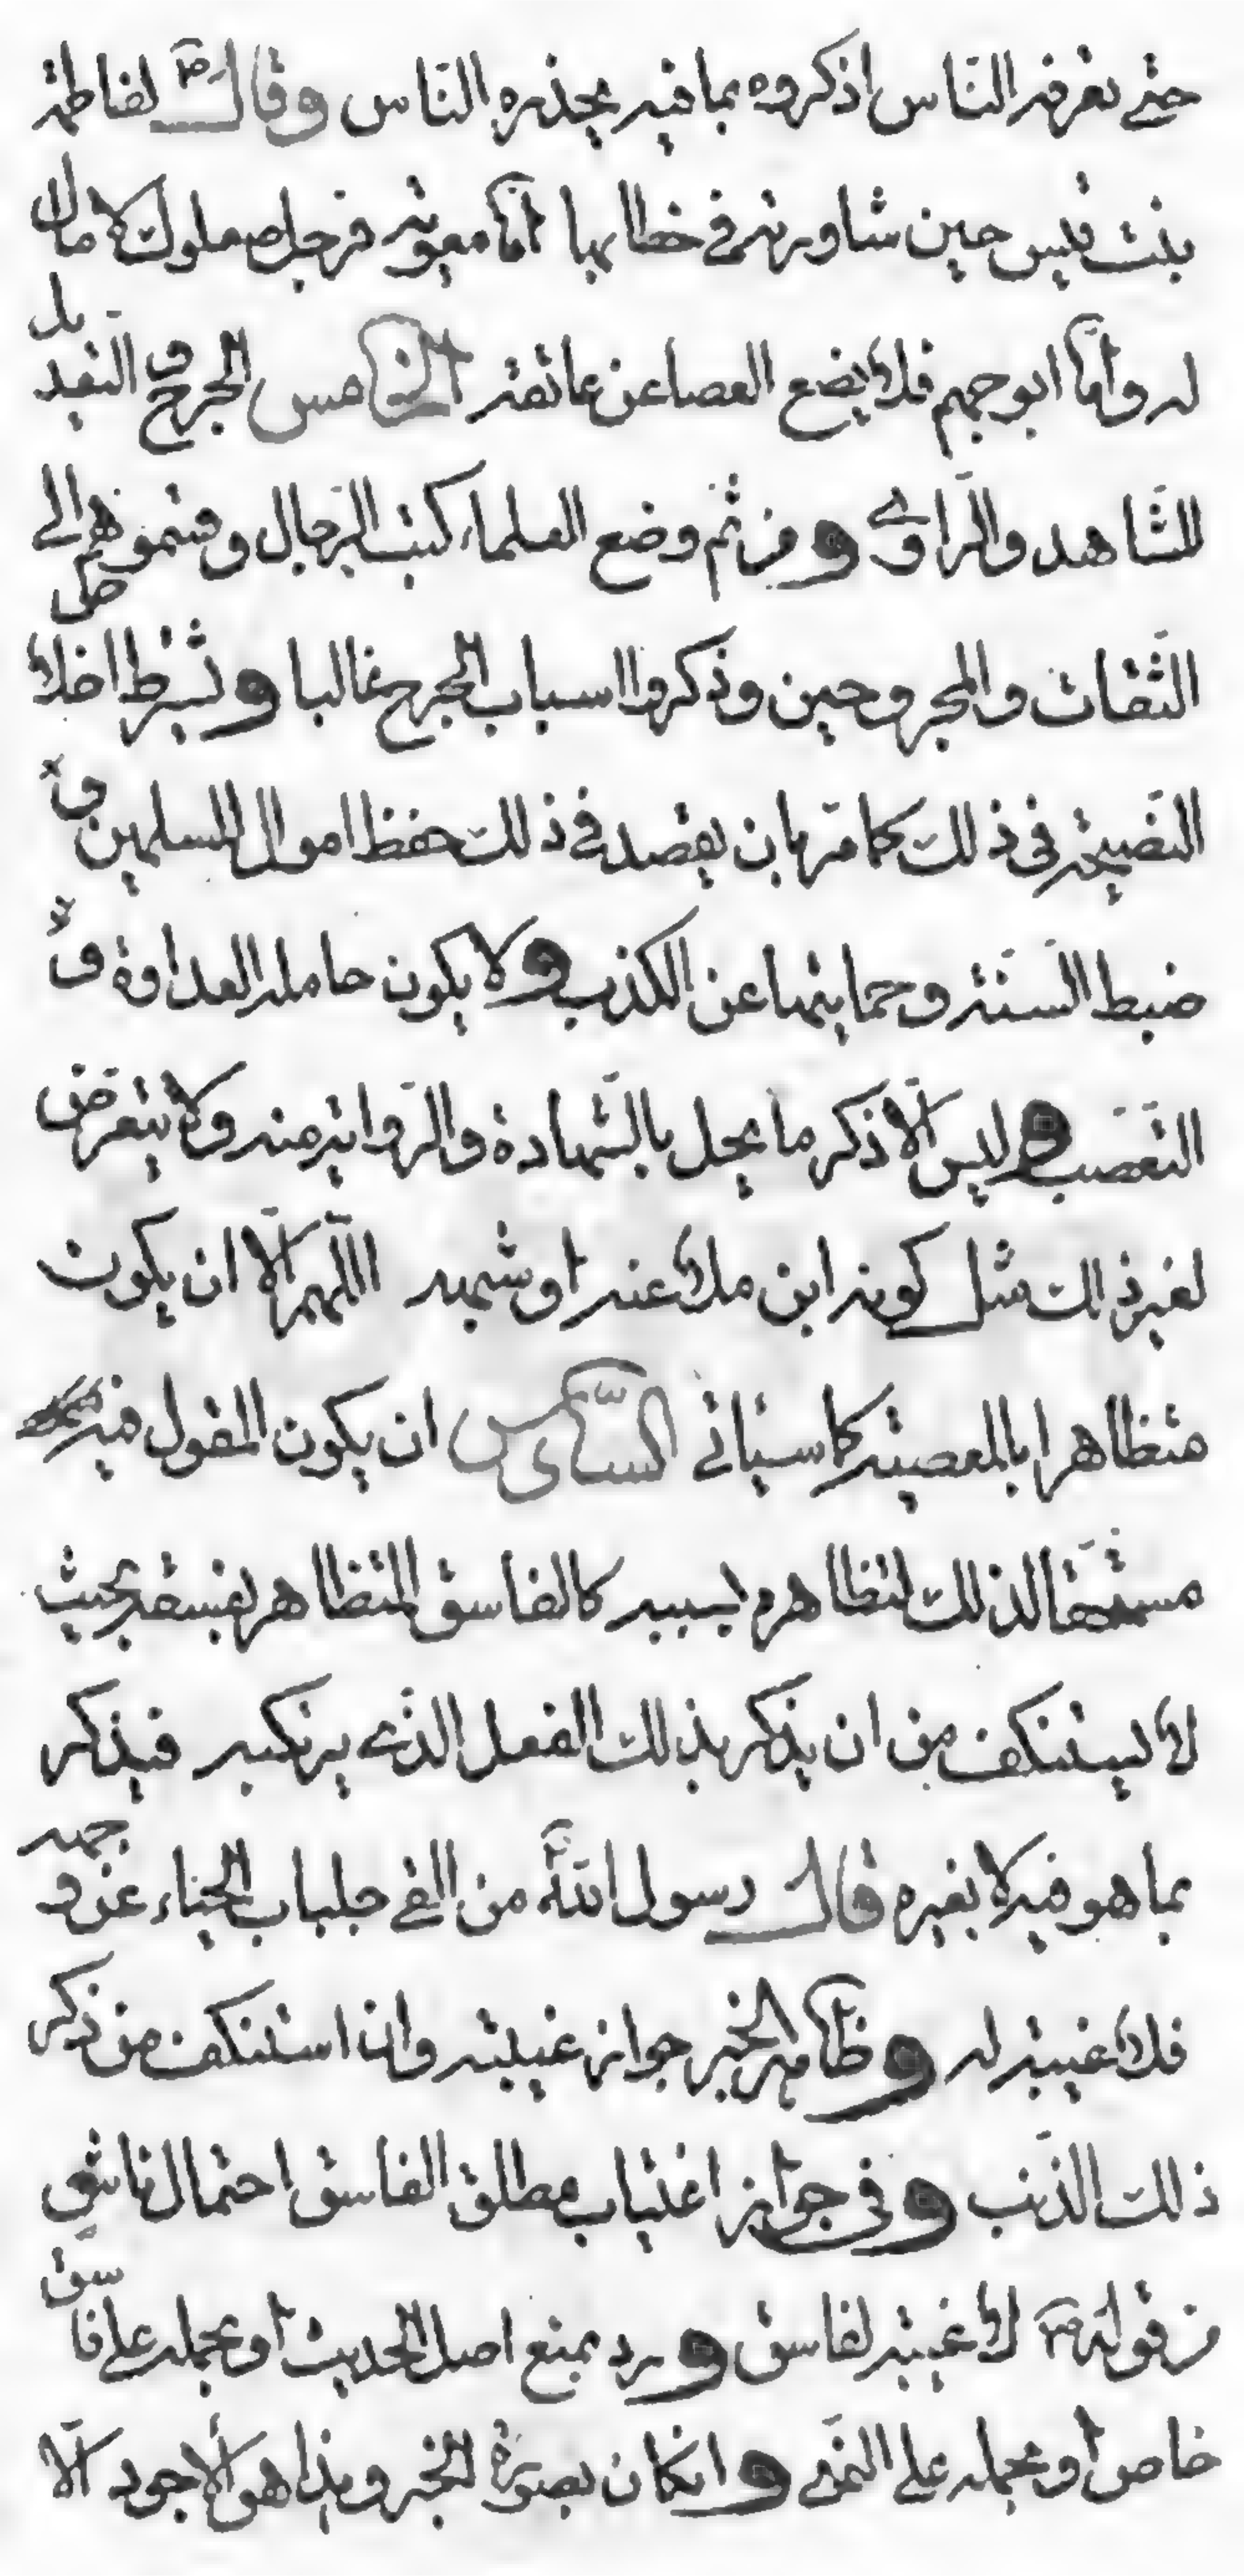 حتى تعرفه الناس اذكروه بما فيه يحذره الناس وقال ص لفاطمة
بنت قيس حين شاورته في خطابها اما معوية فرجل صعلوك لا مال
له واما ابو جهم فلا يضع العصا عن عاتقه الخامس الجرح و التعديل
للشاهد والراوي ومن ثم وضع العلماء كتب الرجال وقسموهم الى
الثقات والمجروحين وذكروا اسباب الجرح غالبا ويشترط اخلاص
النصيحة في ذلك كما مر بان يقصد في ذلك حفظ اموال المسلمين و
ضبط السنة وحمايتها عن الكذب ولا يكون حامله العداوة و
التعصب وليس الا ذكر ما يخل بالشهادة والرواية منه ولا يتعرض
لغير ذلك مثل كونه ابن ملاعنه او شبهه اللهم الا ان يكون
متظاهرا بالمعصية كما سياتي السادس ان يكون المقول فيه
مستحقا لذلك لتظاهره بسببه كالفاسق المتظاهر بفسقه بحيث
لا يستنكف من ان يذكر بذلك الفعل الذي يرتكبه فيذكر
بما هو فيه لا بغيره قال رسول الله من القى جلباب الحياء عن وجهه
فلا غيبة له وظاهر الخبر جواز غيبته وان استنكف من ذكر
ذلك الذنب وفي جواز اغتياب مطلق الفاسق احتمال ناشئ
من قوله ص لا غيبة لفاسق ورد بمنع اصل الحديث او بحمله على فاسق
خاص او بحمله على النهي وان كان بصورة الخبر وهذا هو الاجود الا